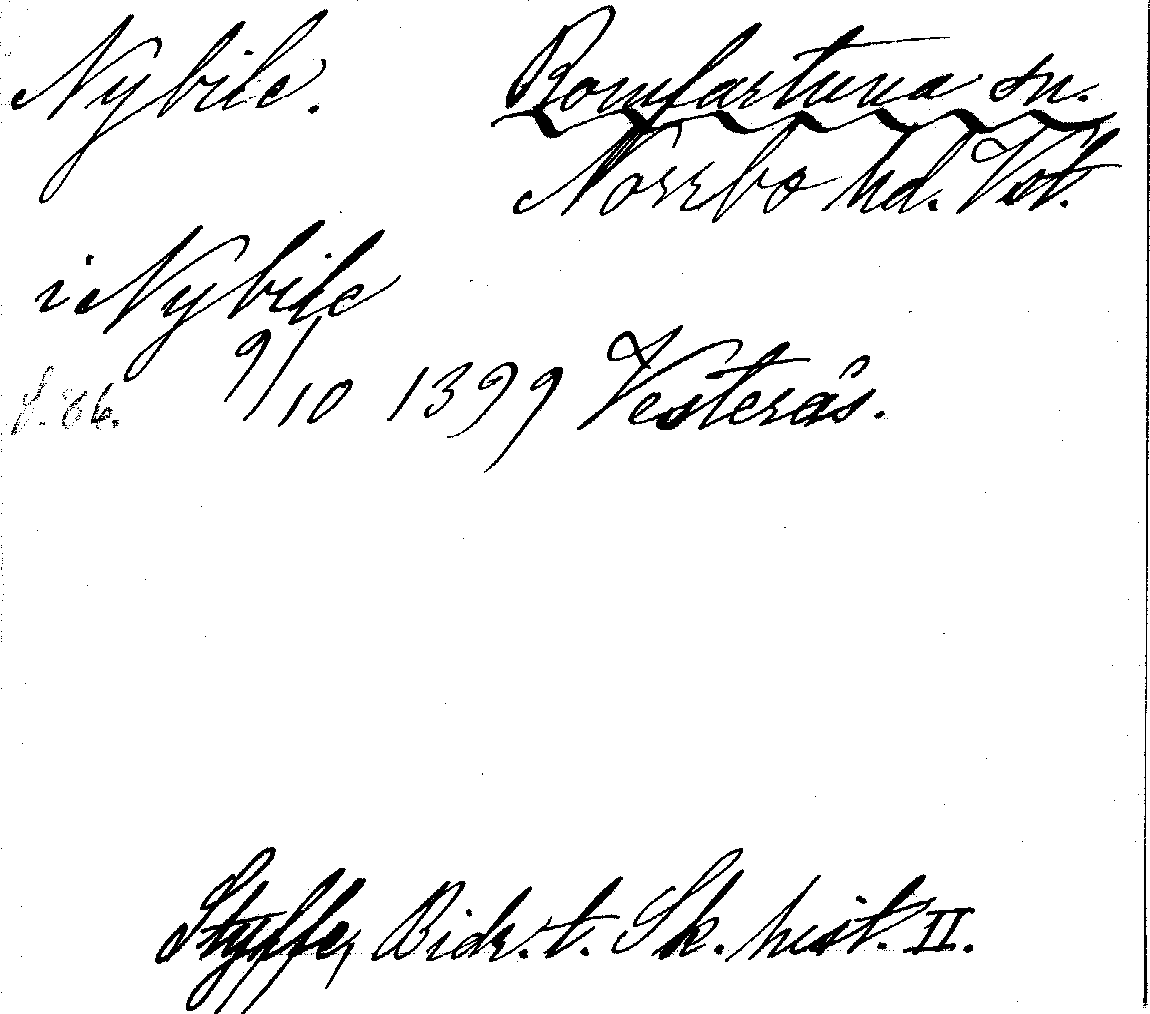 Nybile. Romfartuna sn.
Norrbo hd. Vst.
i Nybile
9/10 1399 Vesterås.
s. 86.
Styffe, Bidr. t. Sk. hist. II.